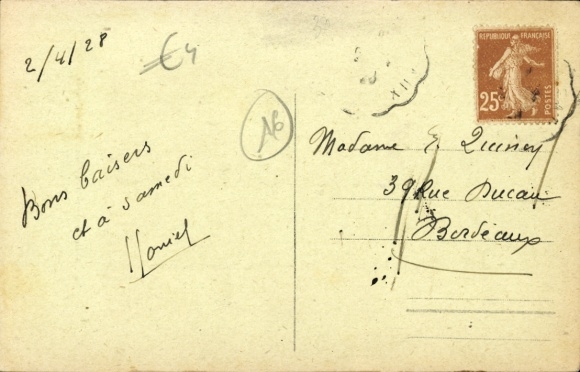 2/4/28
€4
16
Bons baisers
et à samedi
REPUBLIQUE FRANÇAISE
25c
POSTES
XII
Madame E.
39 Rue Ducau
Bordeaux